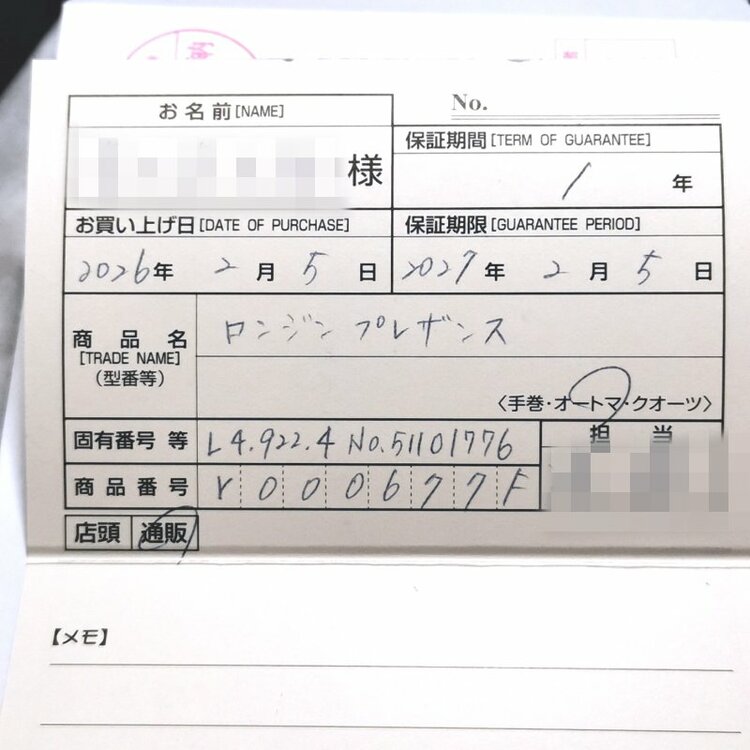 お名前[NAME]
様
No.
保証期間[TERM OF GUARANTEE]
1 年
お買い上げ日[DATE OF PURCHASE]
2026年 2月 5日
保証期限[GUARANTEE PERIOD]
2027年 2月 5日
商品名
[TRADE NAME]
(型番等)
ロンジン プレザンス
〈手巻・オートマ・クオーツ〉
固有番号 等
L4.922.4 No.51101776
担当
商品番号
Y000677F
店頭 通販
【メモ】